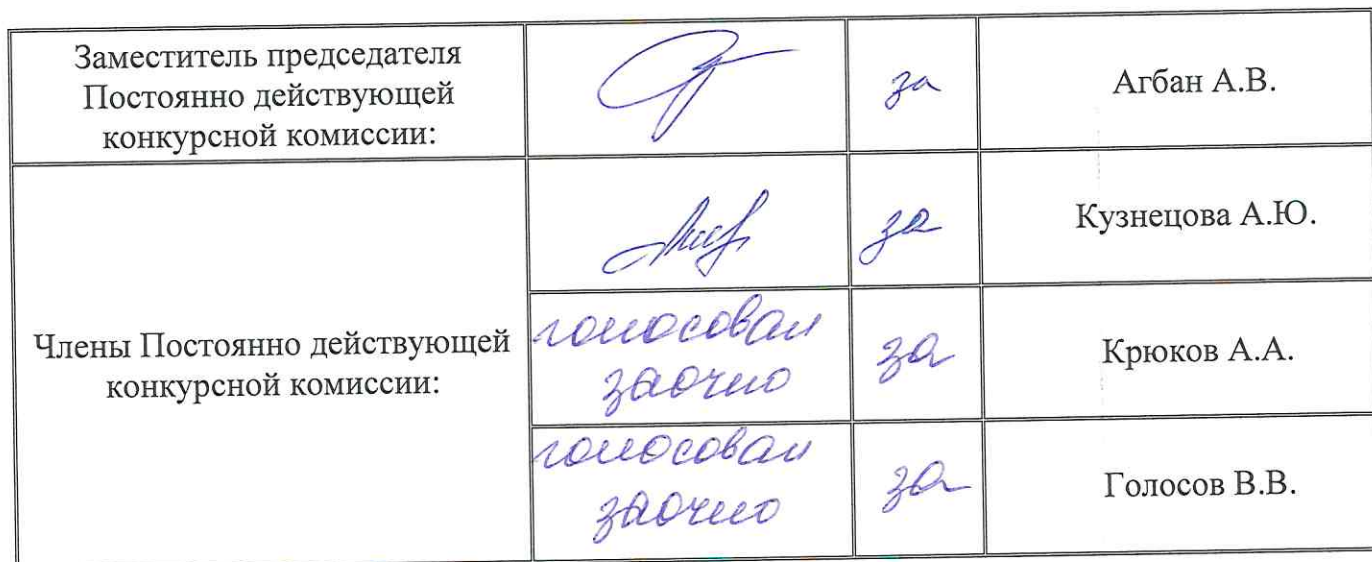 Заместитель председателя
Постоянно действующей
конкурсной комиссии:
за
Агбан А.В.
Члены Постоянно действующей
конкурсной комиссии:
за
Кузнецова А.Ю.
голосовал
заочно
за
Крюков А.А.
голосовал
заочно
за
Голосов В.В.